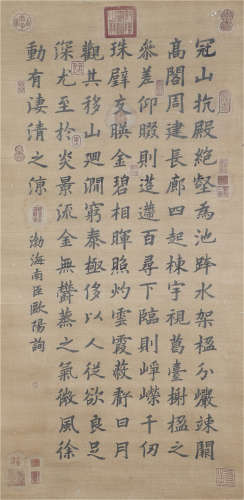 冠山抗殿絕壑為池跨水架楹分巖竦闕
高閣周建長廊四起棟宇視葛臺榭楹之
參差仰暇則迢遞百尋下臨則崢嶸千仞
珠璧交暎金碧相暉照灼雲霞蔽日月
觀其移山迴澗窮泰極侈以人從欲良足
深尤至於炎景流金無鬱蒸之氣微風徐
動有淒清之涼
渤海南臣歐陽詢